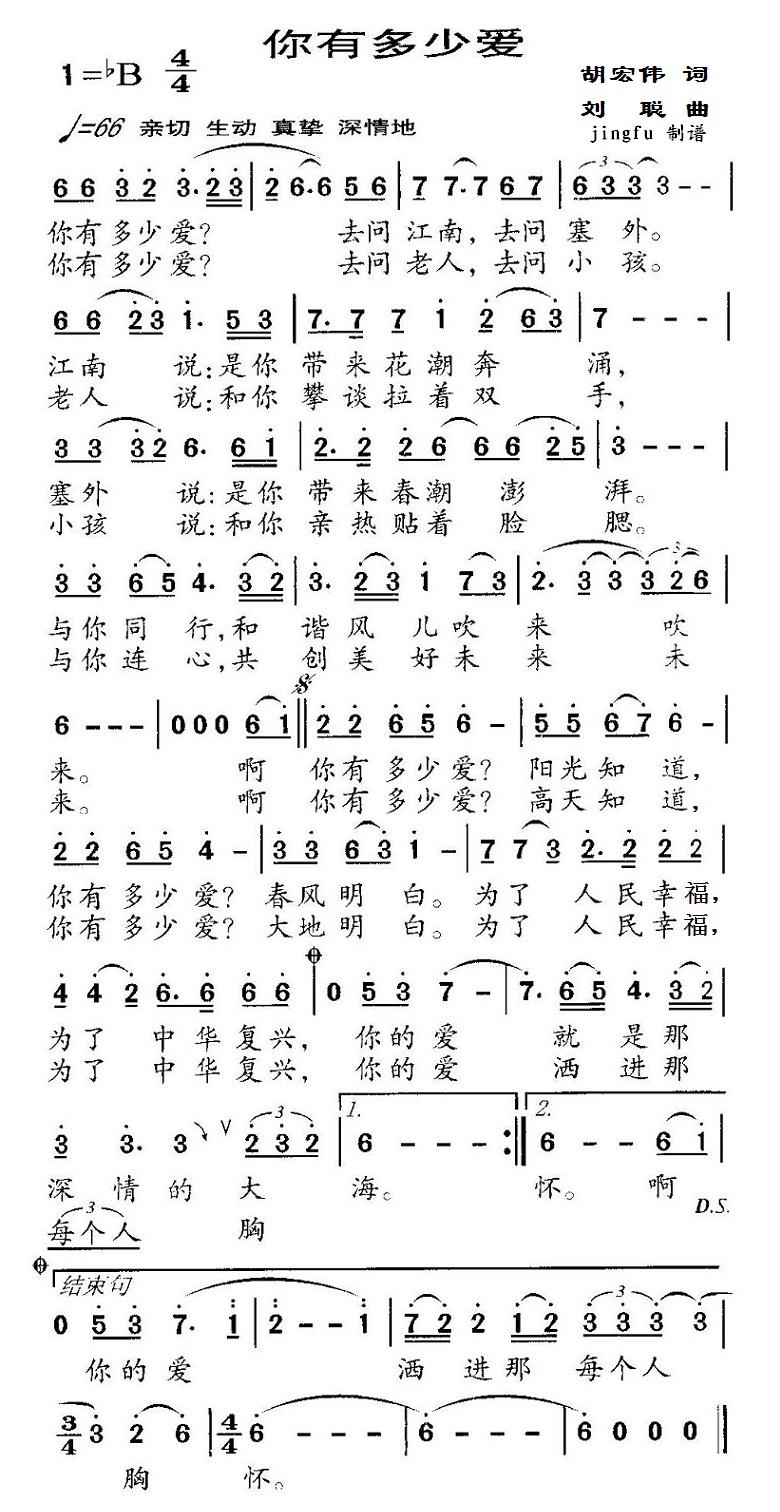 你有多少爱
1=♭B 4/4
胡宏伟 词
刘 聪 曲
jingfu 制谱
♩=66 亲切 生动 真挚 深情地
6 6 3 2 3. 2 3 | 2 6. 6 5 6 | 7 7. 7 6 7 | 6 3 3 3 - - |
你有多少爱? 去问江南,去问塞 外。
你有多少爱? 去问老人,去问小 孩。
6 6 2 3 1. 5 3 | 7. 7 7 1 2 6 3 | 7 - - - |
江南 说:是你 带来花潮奔 涌,
老人 说:和你 攀谈拉着双 手,
3 3 3 2 6. 6 1 | 2. 2 2 6 6 6 2 5 | 3 - - - |
塞外 说:是你 带来春潮 澎 湃。
小孩 说:和你 亲热贴着 脸 腮。
3 3 6 5 4. 3 2 | 3. 2 3 1 7 3 | 2. 3 3 3 2 6
与你同 行,和 谐风 儿吹 来 吹
与你连 心,共 创美 好未 来 未
6 - - - | 0 0 0 6 1 || 2 2 6 5 6 - | 5 5 6 7 6 - |
来。 啊 你有多少爱? 阳光知 道,
来。 啊 你有多少爱? 高天知 道,
2 2 6 5 4 - | 3 3 6 3 1 - | 7 7 3 2. 2 2 2 |
你有多少爱? 春风明 白。为了 人民幸福,
你有多少爱? 大地明 白。为了 人民幸福,
4 4 2 6. 6 6 6 | 0 5 3 7 - | 7. 6 5 4. 3 2 |
为了 中华复兴, 你的爱 就是那
为了 中华复兴, 你的爱 洒进那
3 3. 3 ∨ 2 3 2 | 1. 6 - - - :| 2. 6 - - 6 1 |
深 情的大 海。 怀。 啊
D.S.
每个人 胸
结束句
0 5 3 7. 1 | 2 - - 1 | 7 2 2 1 2 3 3 3 3 |
你的爱 洒 进那 每个人
3/4 3 2 6 | 4/4 6 - - - | 6 - - - | 6 0 0 0 |
胸 怀。